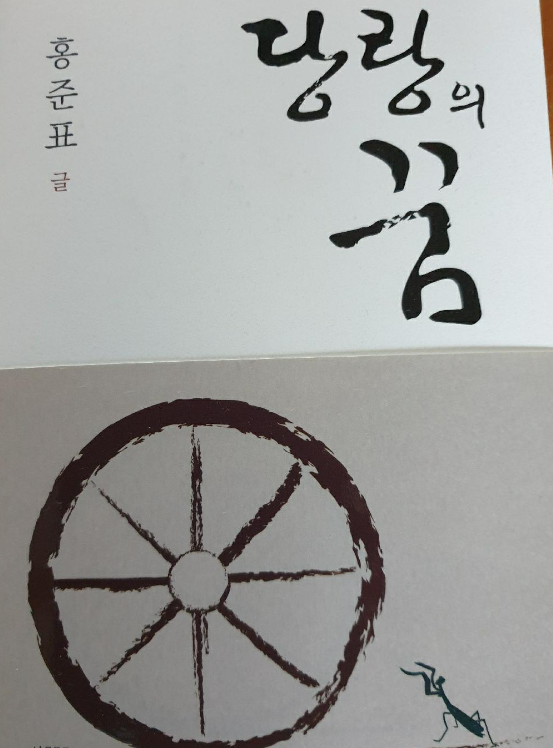 당랑의
꿈
홍준표
글